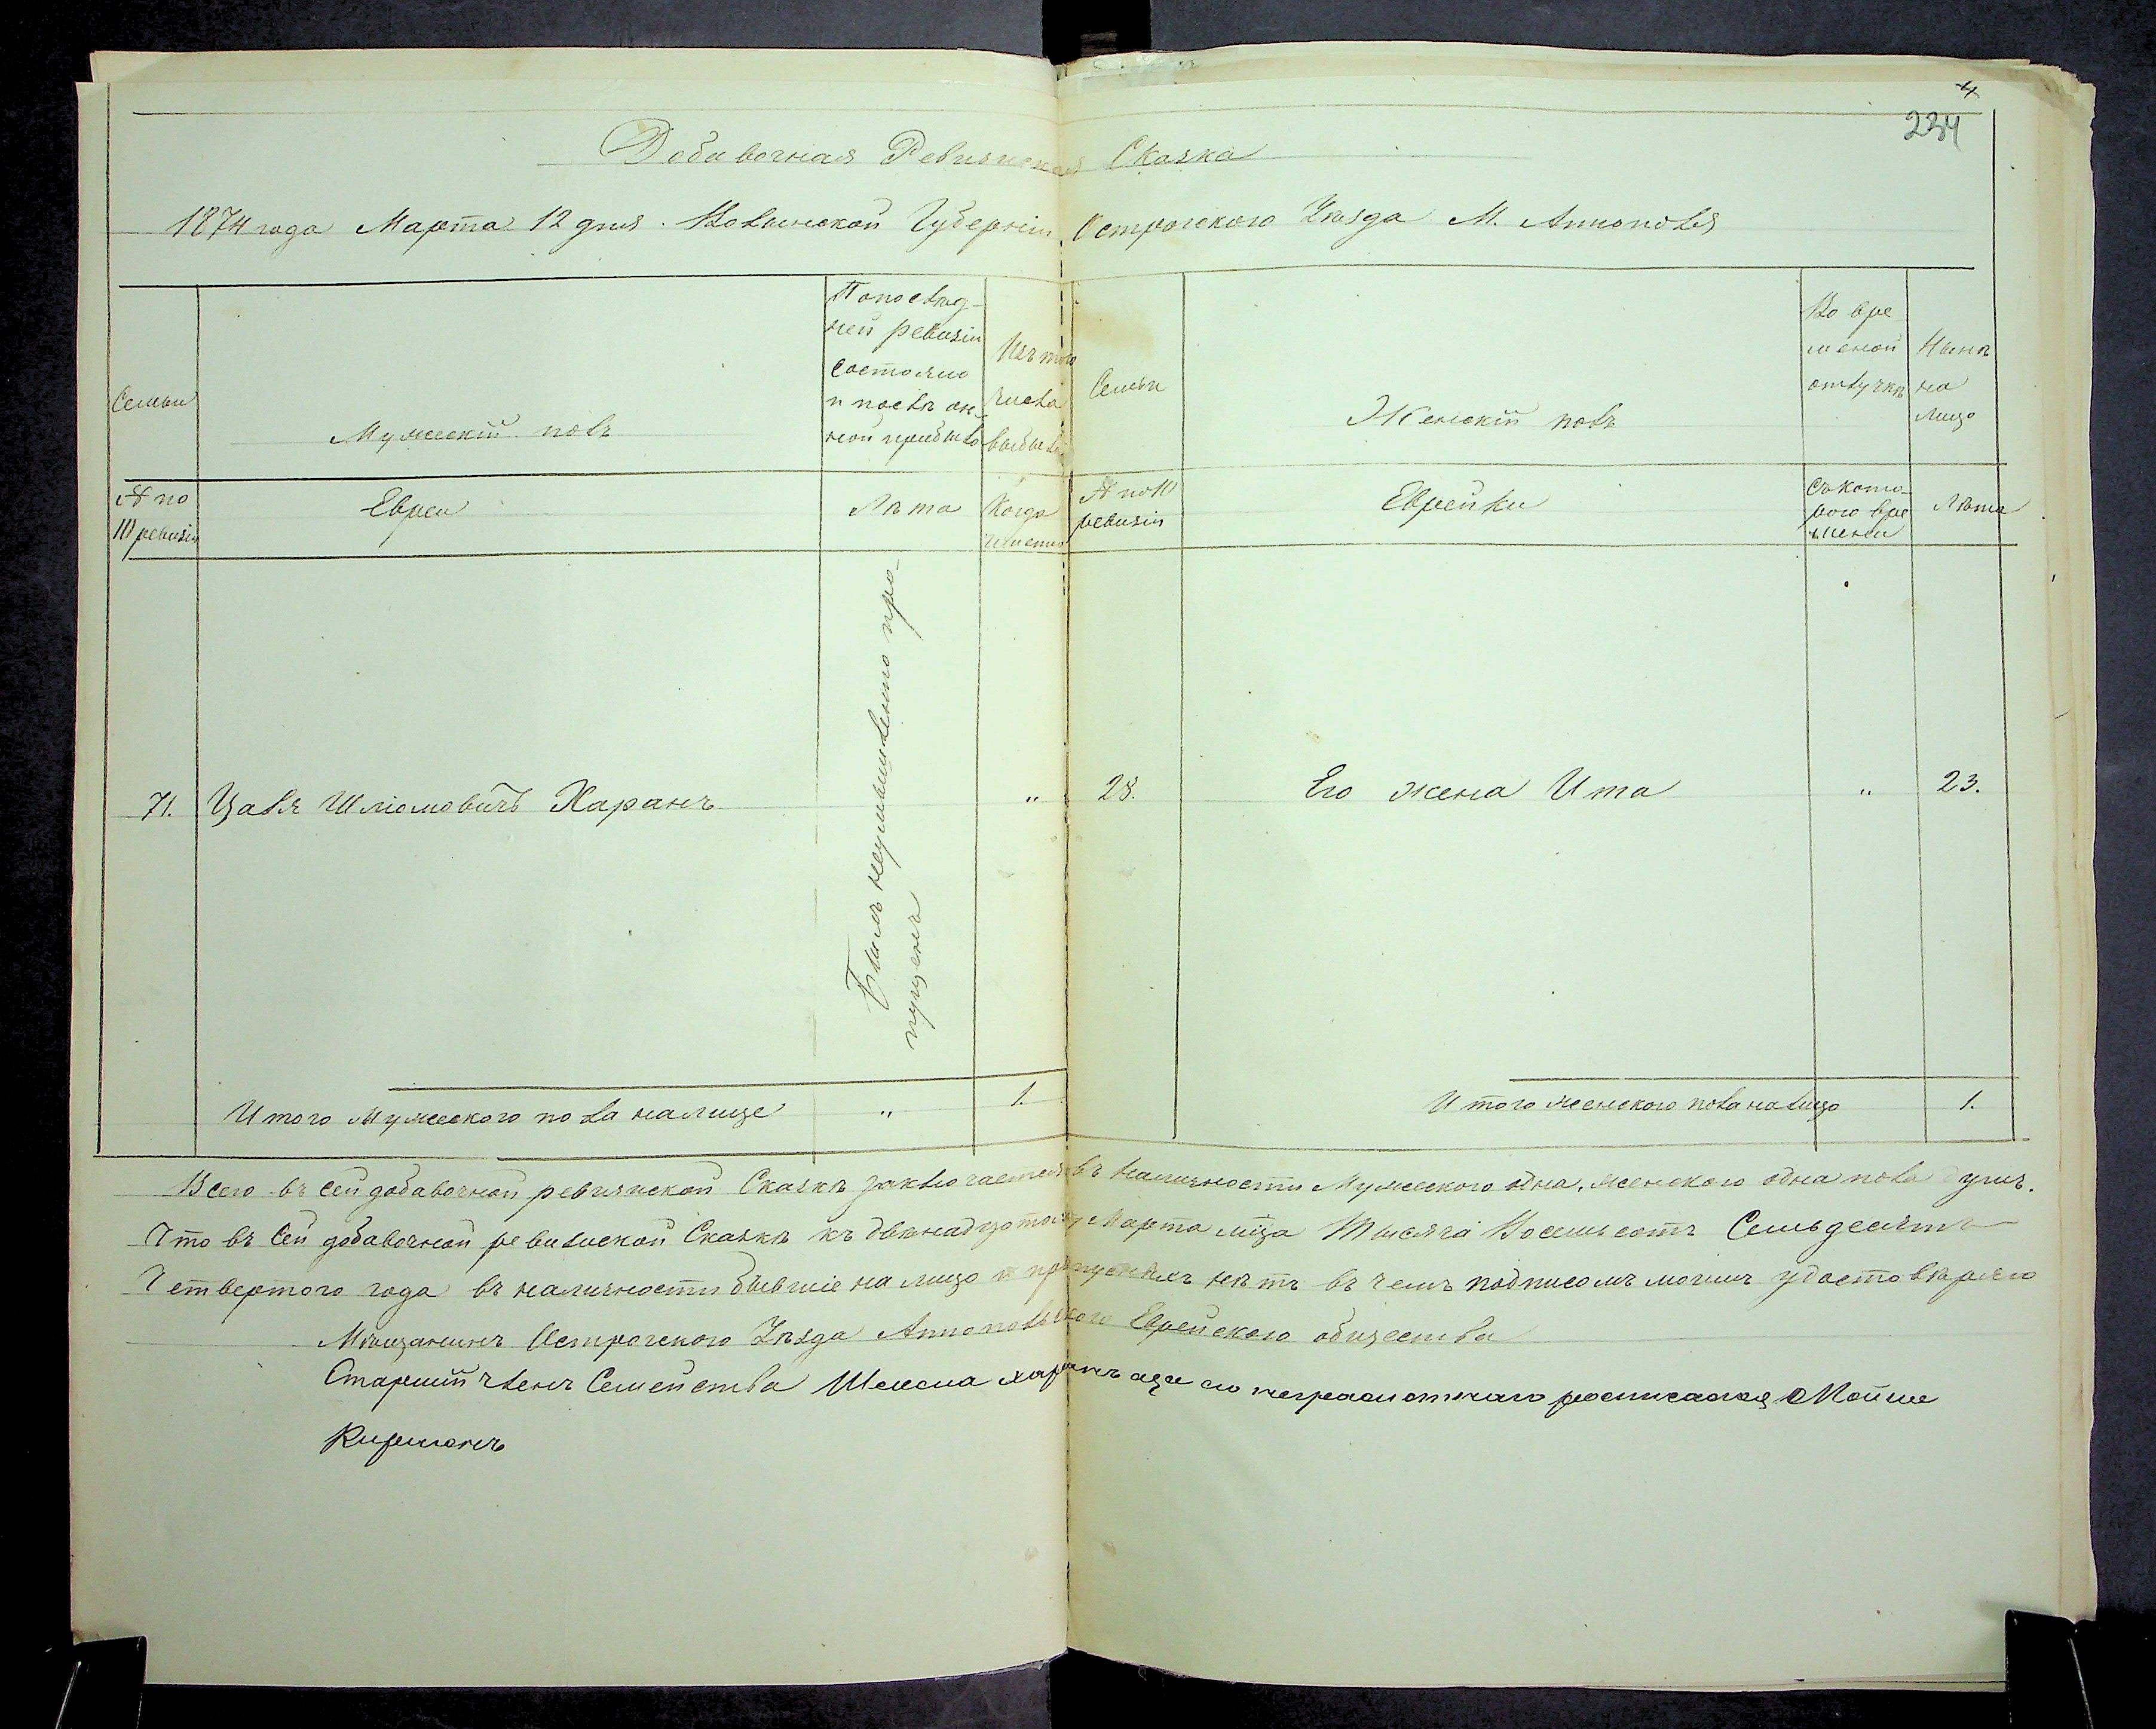 4
234
Добавочная Ревизская Сказка
1874 года Марта 12 дня. Волынской Губерніи, Острогского Уѣзда М. Аннополя
Семьи
Мужескій полъ
По послѣд-
ней ревизіи
состояло
и послѣ он-
ной прибыло
Изъ того
числа
выбыло
Семьи
Женскій полъ
Во вре
меной
отлучкѣ
Нынѣ
на
лицо
№ по
10 ревизіи
Евреи
Лѣта
Когда
именно
№ по 10
ревизіи
Еврейки
Съ кото-
рого вре
мени
Лѣта
71. Цаля Шліомовичъ Харанъ
Былъ неумышленно про-
пущенъ
" 28. Его жена Ита " 23.
Итого Мужеского пола налице " 1.
Итого женского пола на лицо 1.
Всего въ сей добавочной ревизской Сказкѣ заключается въ наличности Мужеского одна, женского одна пола душъ.
Что въ Сей добавочной ревизской Сказкѣ къ двѣнадцатому Марта мца Тысяча Восемьсотъ Семьдесятъ
Четвертого года въ наличности бывшіе на лицо и пропускныхъ нѣтъ въ чемъ подписомъ моимъ удостовѣряю
Мѣщанинъ Острогского Уѣзда Аннопольского Еврейского общества
Старшій членъ Семейства Шлиома Харанъ аза его неграмотнаго росписался Мойше
Киршонъ